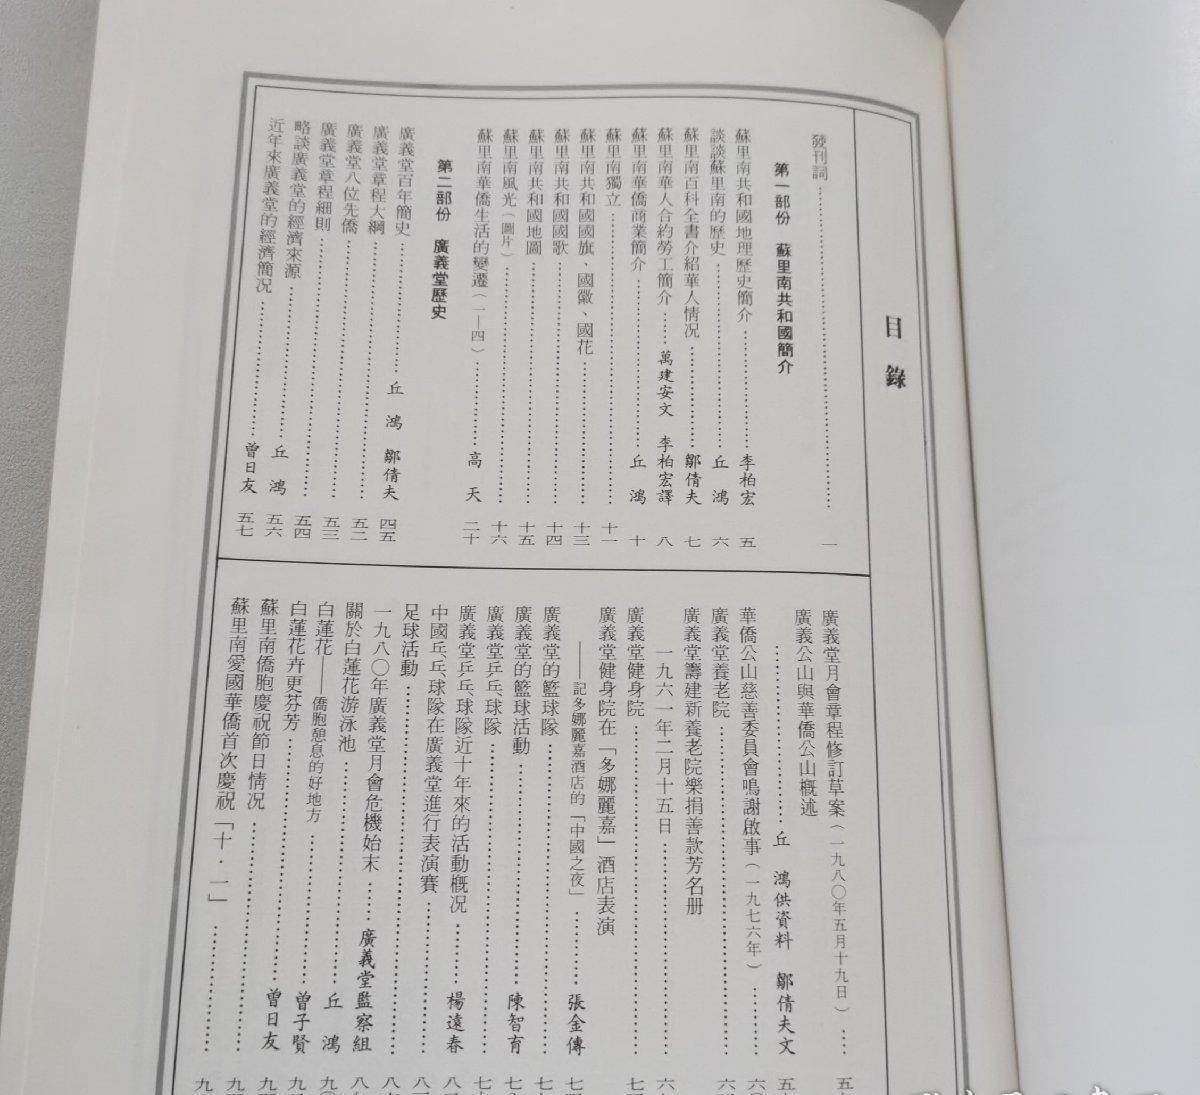 目錄
發刊詞……一
第一部份　蘇里南共和國簡介
蘇里南共和國地理歷史簡介……李柏宏 五
談談蘇里南的歷史……丘 鴻 六
蘇里南百科全書介紹華人情况……鄒倩夫 七
蘇里南華人合約勞工簡介……萬建安文 李柏宏譯 八
蘇里南華僑商業簡介……丘 鴻 十
蘇里南獨立……十一
蘇里南共和國國旗、國徽、國花……十三
蘇里南共和國國歌……十四
蘇里南共和國地圖……十五
蘇里南風光(圖片)……十六
蘇里南華僑生活的變遷(一—四)……高 天 二十
第二部份　廣義堂歷史
廣義堂百年簡史……丘 鴻 鄒倩夫 四五
廣義堂章程大綱……五二
廣義堂八位先僑……五三
廣義堂章程細則……五四
略談廣義堂的經濟來源……丘 鴻 五六
近年來廣義堂的經濟簡况……曾日友 五七
廣義堂月會章程修訂草案(一九八〇年五月十九日)……五
廣義公山與華僑公山概述
……丘 鴻供資料 鄒倩夫文 五
華僑公山慈善委員會鳴謝啟事(一九七六年)……六〇
廣義堂養老院……六
廣義堂籌建新養老院樂捐善款芳名册
一九六一年二月十五日……六
廣義堂健身院……七
廣義堂健身院在「多娜麗嘉」酒店表演
——記多娜麗嘉酒店的「中國之夜」……張金傳 七
廣義堂的籃球隊……七
廣義堂的籃球活動……陳智育 七
廣義堂乒乓球隊……七
廣義堂乒乓球隊近十年來的活動概况……楊遠春 八
中國乒乓球隊在廣義堂進行表演賽……八
足球活動……八
一九八〇年廣義堂月會危機始末……廣義堂監察組 八
關於白蓮花游泳池……丘 鴻 九〇
白蓮花——僑胞憩息的好地方……曾子賢 九
白蓮花卉更芬芳……曾日友 九
蘇里南僑胞慶祝節日情况……九
蘇里南愛國華僑首次慶祝「十·一」……九